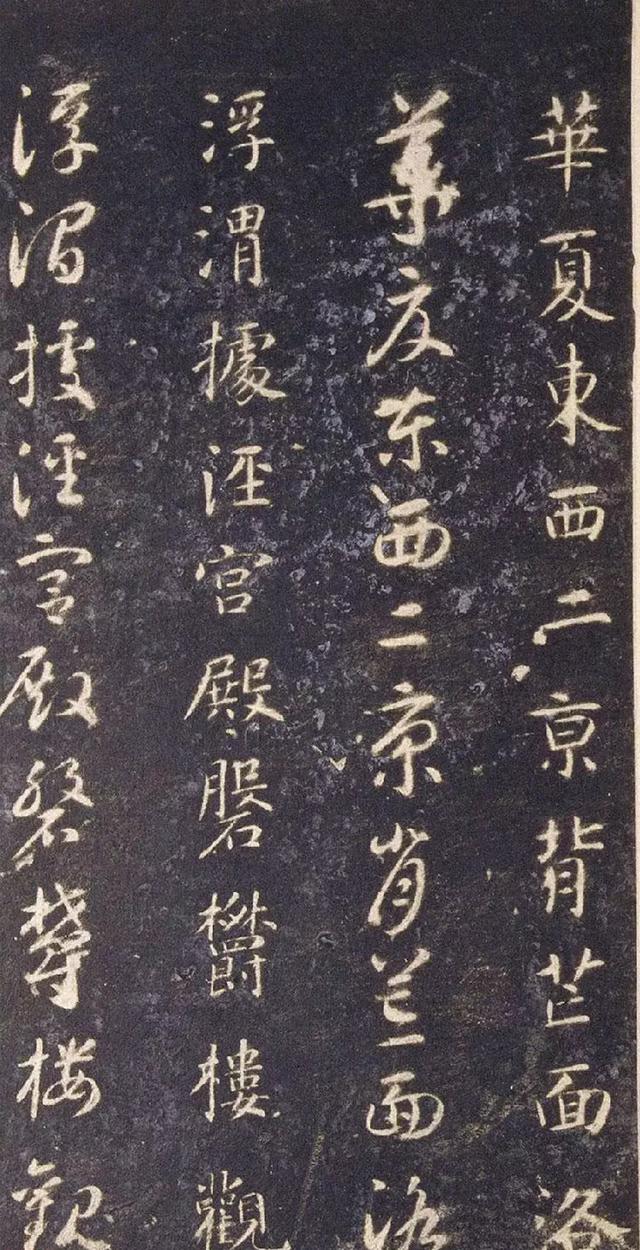 華夏東西二京背芒面洛
華夏東西二京背芒面洛
浮渭據涇宮殿磐欎樓觀
浮渭據涇宮殿磐欎楼觀